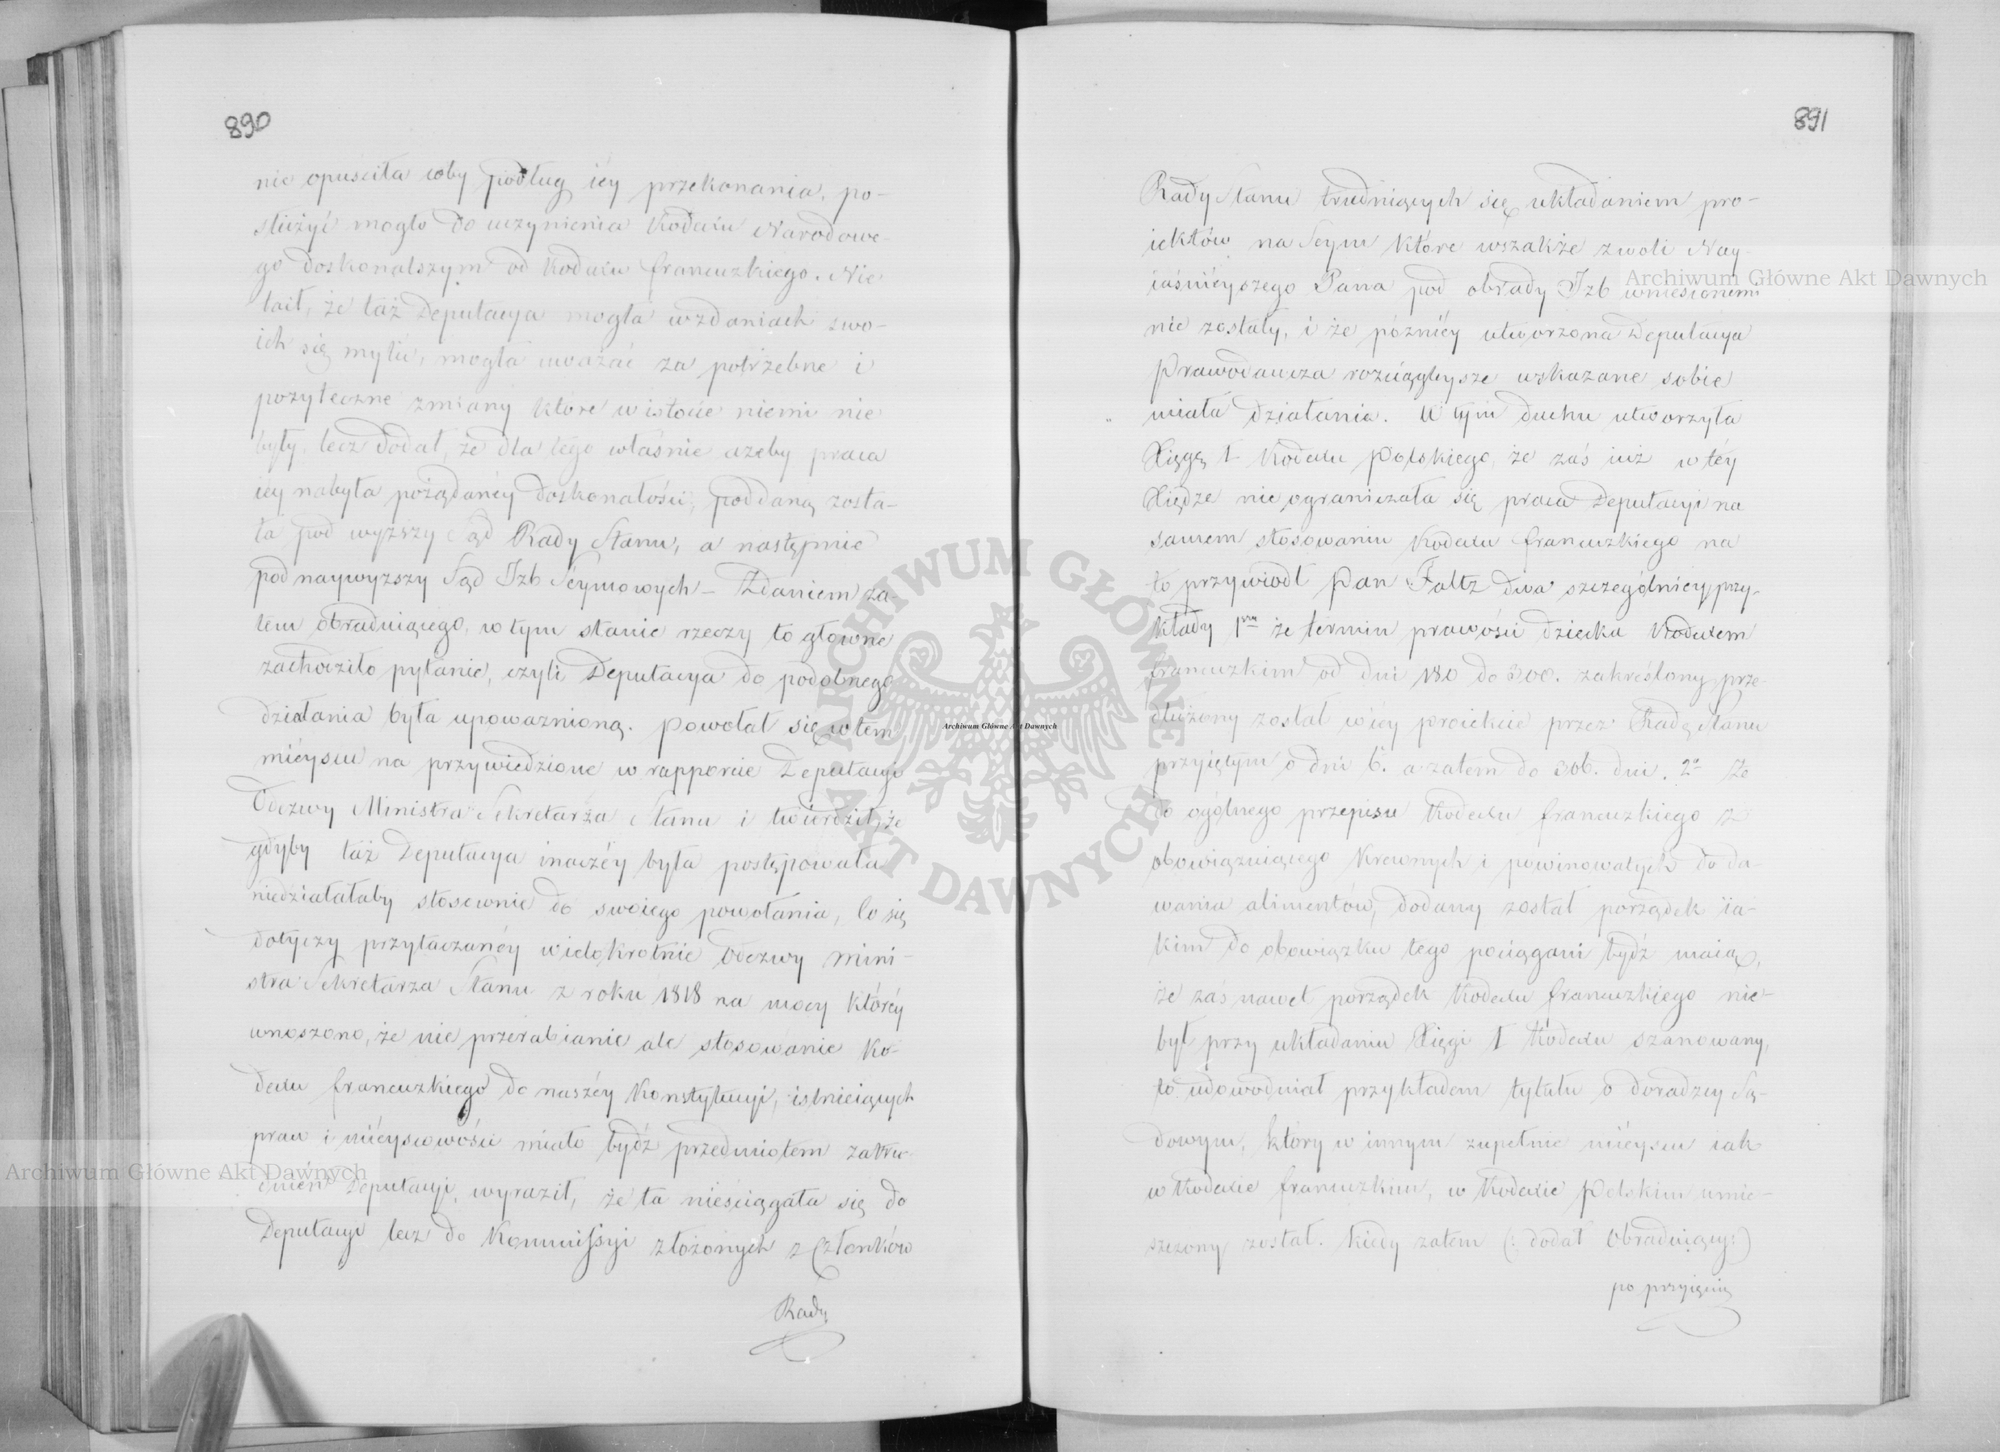 890
nie opuściła coby podług iéy przekonania, po-
służyć mogło do uczynienia Kodexu Narodowe-
go doskonalszym od Kodexu francuzkiego. Nie
taił, że taż Deputacya mogła w zdaniach swo-
ich się mylić, mogła uważać za potrzebne i
pożyteczne zmiany które w istocie niemi nie
były, lecz dodał, że dla tego właśnie ażeby praca
iéy nabyła pożądanéy doskonałości, poddaną zosta-
ła pod wyższy Sąd Rady Stanu, a następnie
pod naywyższy Sąd Izb Séymowych – Zdaniem za-
tem obraduiącego, w tym stanie rzeczy to głowne
zachodziło pytanie, czyli Deputacya do podobnego
działania była upoważnioną. Powołał się w tem
miéyscu na przywiedzione w rapporcie Deputacyi
Odezwy Ministra Sekretarza Stanu i twierdził, że
gdyby taż Deputacya inaczéy była postępowała
niedziałałaby stosownie do swoiego powołania, Co się
dotyczy przytaczanéy wielokrotnie Odezwy Mini-
stra Sekretarza Stanu z roku 1818 na mocy któréy
wnoszono, że nie przerabianie ale stosowanie Ko-
dexu francuzkiego do naszéy Konstytucyi, istnieiących
praw i miéyscowości miało bydź przedmiotem zatru-
dnień Deputacyi, wyraził, że ta nieściągała się do
Deputacyi lecz do Kommissyi złożonych z Członków
Rady
891
Rady Stanu trudniących się układaniem pro-
iektów na Seym które wszakże z woli Nay-
iaśnieyszego Pana pod obrady Izb wniesionemi
nie zostały, i że późniéy utworzona Deputacya
Prawodawcza rozciągleysze wskazane sobie
miała działania. W tym duchu utworzyła
Xięgę 1 Kodexu Polskiego, że zaś iuż w téy
Xiędze nie ograniczała się praca Deputacyi na
samem stosowaniu Kodexu francuzkiego na
to przywiodł Pan Faltz dwa szczególniey przy-
kłady 1mo że termin prawości dziecka Kodexem
francuzkim od dni 180 do 300. zakreślony, prze-
dłużony został w iéy proiekcie przez Radę Stanu
przyiętym o dni 6. a zatem do 306. dni, 2o Że
do ogólnego przepisu Kodexu francuzkiego
obowiązuiącego Krewnych i powinowatych do da-
wania alimentów, dodany został porządek ia-
kim do obowiązku tego pociągani bydź maią,
że zaś nawet porządek Kodexu francuzkiego nie-
był przy układaniu Xięgi 1 Kodexu szanowany,
to udowodniał przykładem tytułu o doradzcy Są-
dowym, który w innym zupełnie miéyscu iak
w Kodexie francuzkim, w Kodexie Polskim umie-
szczony został. Kiedy zatem (: dodał Obraduiący:)
po przyięciu
Archiwum Główne Akt Dawnych
Archiwum Główne Akt Dawnych
Archiwum Główne Akt Dawnych
ARCHIWUM GŁÓWNE AKT DAWNYCH